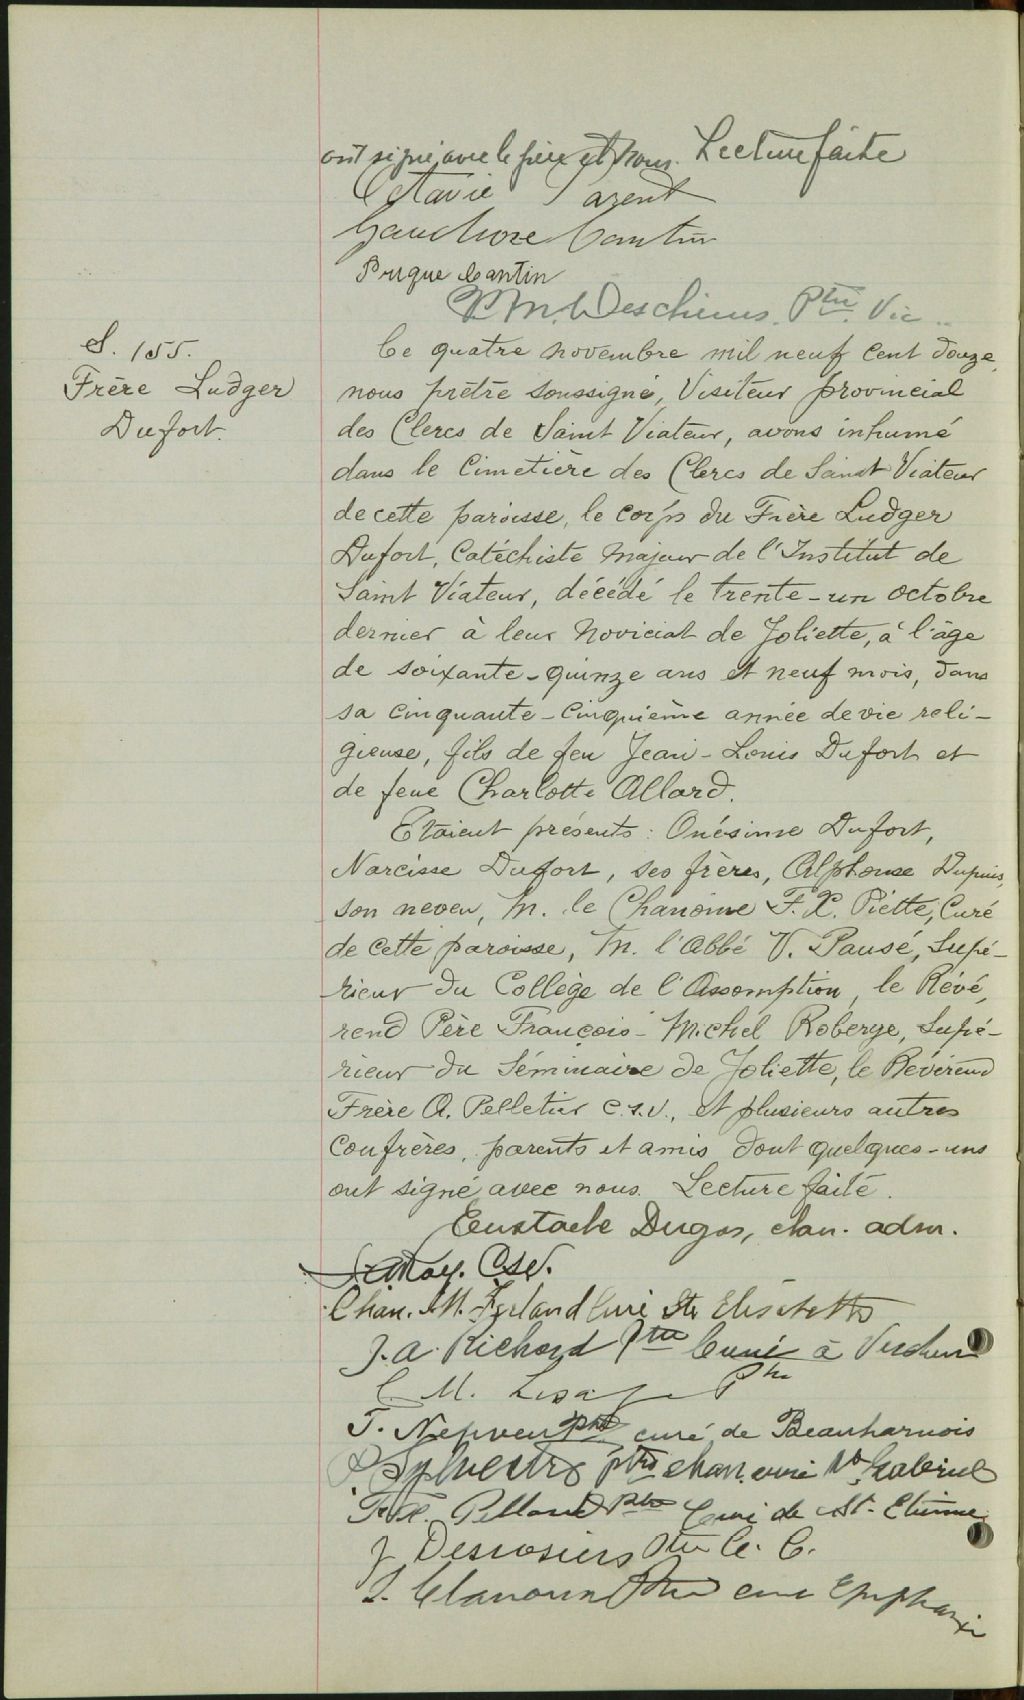 ont signé avec le père et nous. Lecture faite
Octavie Parent
Gaudiose Cantin
Cantin
M. Deschenes. Ptre. Vic..
S. 155.
Frère Ludger
Dufort.
Ce quatre novembre mil neuf cent douze,
nous prêtre soussigné, Visiteur provincial
des Clercs de Saint Viateur, avons inhumé
dans le Cimetière des Clercs de Saint Viateur
de cette paroisse, le corps du Frère Ludger
Dufort, Catéchiste Majeur de l'Institut de
Saint Viateur, décédé le trente-un octobre
dernier à leur Noviciat de Joliette, à l'âge
de soixante-quinze ans et neuf mois, dans
sa cinquante-cinquième année de vie reli-
gieuse, fils de feu Jean-Louis Dufort et
de feue Charlotte Allard.
Etaient présents: Onésime Dufort,
Narcisse Dufort, ses frères, Alphonse Dupuis,
son neveu, M. le Chanoine F. X. Piette, Curé
de cette paroisse, M. l'Abbé V. Pausé, Supé-
rieur du Collège de l'Assomption, le Révé-
rend Père François-Michel Roberge, Supé-
rieur du Séminaire de Joliette, le Révérend
Frère A. Pelletier C.S.V., et plusieurs autres
confrères, parents et amis dont quelques-uns
ont signé avec nous. Lecture faite.
Eustache Dugas, chan. adm.
Roy. CSV.
Chan. M. Ferland Curé Ste Elisabeth
J. A. Richard Ptre Curé à Verdun
C. M. Lesage Ptre
T. Nepveu ptre curé de Beauharnois
Sylvestre ptre chan. curé St Gabriel
F. X. Pelland Ptre Curé de St-Etienne
J Desrosiers Ptre C. C.
J. Clairoux Ptre curé Epiphanie